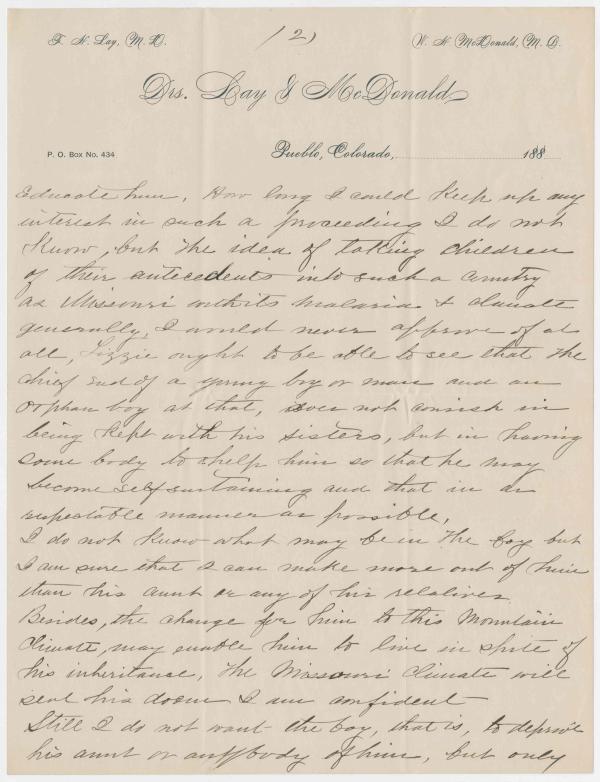 (2)
T. H. Lay, M. D.
W. H. McDonald, M. D.
Drs. Lay & McDonald
P. O. Box No. 434
Pueblo, Colorado, 188
Educate him. How long I could keep up any
interest in such a proceeding I do not
know, but the idea of taking children
of their antecedents into such a country
as Missouri with its malaria & climate
generally, I would never approve of at
all, Lizzie ought to be able to see that the
chief end of a young boy or man and an
orphan boy at that, does not consist in
being kept with his sisters, but in having
some body to help him so that he may
become self sustaining and that in as
respectable manner as possible,
I do not know what may be in the boy but
I am sure that I can make more out of him
than his aunt or any of his relatives
Besides, the change for him to this Mountain
Climate, may enable him to live in spite of
his inheritance, the Missouri Climate will
seal his doom I am confident
Still I do not want the boy, that is, to deprive
his aunt or anybody of him, but only